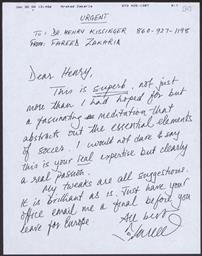 URGENT
TO: DR HENRY KISSINGER 860-927-1198
FROM: FAREED ZAKARIA
Dear Henry,
This is superb, not just
more than I had hoped for but
a fascinating meditation that
abstracts out the essential elements
of soccer. I would not dare to say
this is your real expertise but clearly
a real passion.
My tweaks are all suggestions.
It is brilliant as is. Just have your
office email me a final before you
leave for Europe.
All best
Fareed